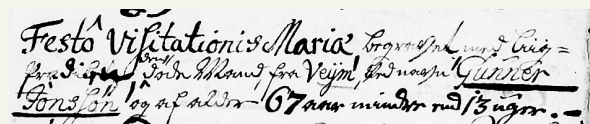 Festô Visitationis Mariæ begravet med Liig=
prædiken den döde Mand, fra Veÿm, ved nafn Gunner
Jönssön og af alder 67 aar mindre end 13 uger.-